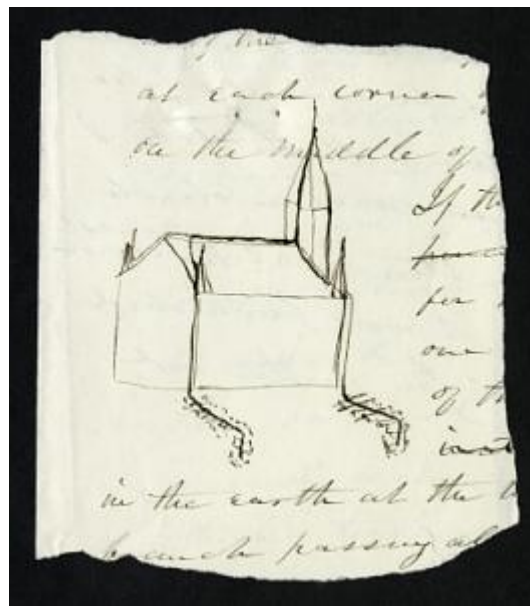 at each corner
on the middle of
If th
for
one
of th
in the earth at the b
branch passing al